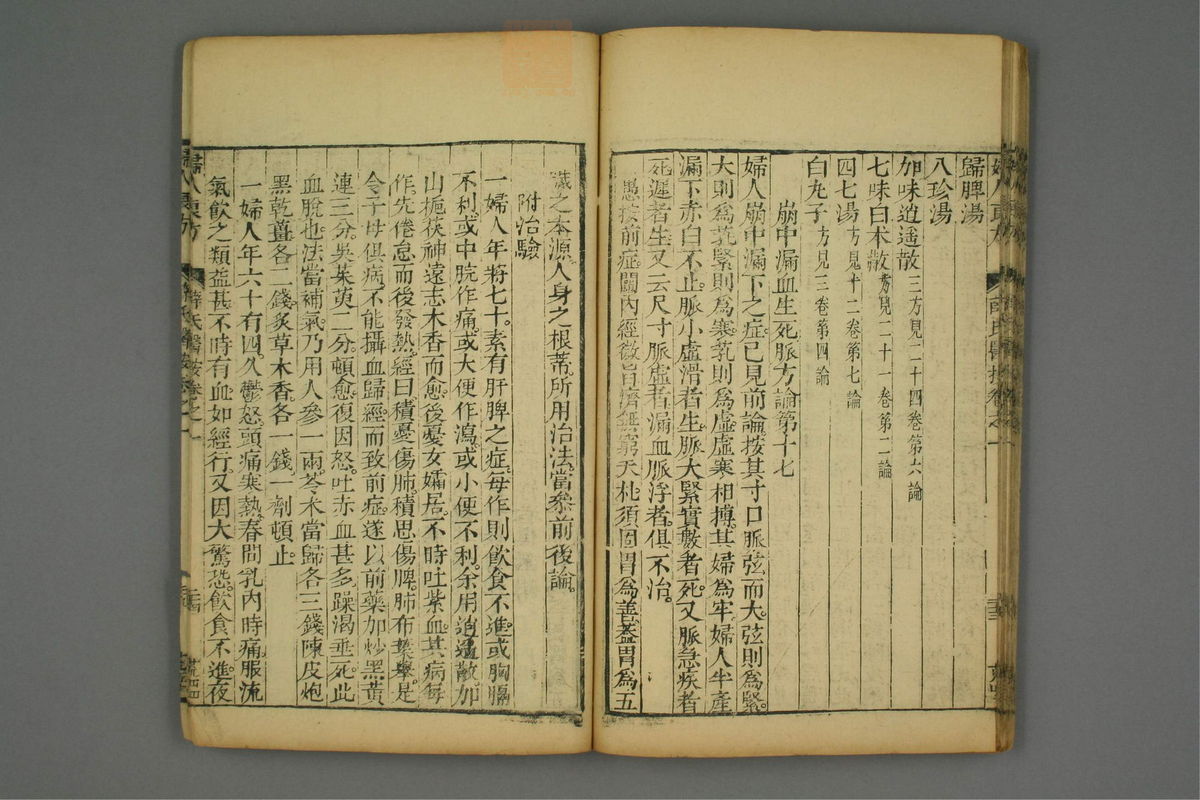 歸脾湯
八珍湯
加味逍遥散二方見二十四卷第六論
七味白术散方見二十一卷第二論
四七湯方見十二卷第七論
白丸子方見三卷第四論
崩中漏血生死脈方論第十七
婦人崩中漏下之症已見前論按其寸口脈弦而大弦則爲緊
大則爲芤緊則爲寒芤則爲虛虛寒相搏其婦爲牢婦人半產
漏下赤白不止脈小虛滑者生脈大緊實數者死又脈急疾者
死遲者生又云尺寸脈虛者漏血脈浮者俱不治
愚按前症關內經微旨濟無窮夭札須固胃爲善蓋胃爲五
臟之本源人身之根蒂所用治法當叅前後論
附治驗
一婦人年將七十素有肝脾之症每作則飲食不進或胸膈
不利或中脘作痛或大便作瀉或小便不利余用逍遥散加
山梔茯神遠志木香而愈後憂女孀居不時吐紫血其病每
作先倦怠而後發熱經曰積憂傷肺積思傷脾肺布葉舉是
令子母俱病不能攝血歸經而致前症遂以前藥加炒黑黄
連三分吳茱萸二分頓愈復因怒吐赤血甚多躁渴垂死此
血脫也法當補氣乃用人參一兩苓术當歸各三錢陳皮炮
黑乾薑各二錢炙草木香各一錢一劑頓止
一婦人年六十有四久鬱怒頭痛寒熱春間乳內時痛服流
氣飲之類益甚不時有血如經行又因大驚恐飲食不進夜
婦人良方
薛氏醫按卷之一